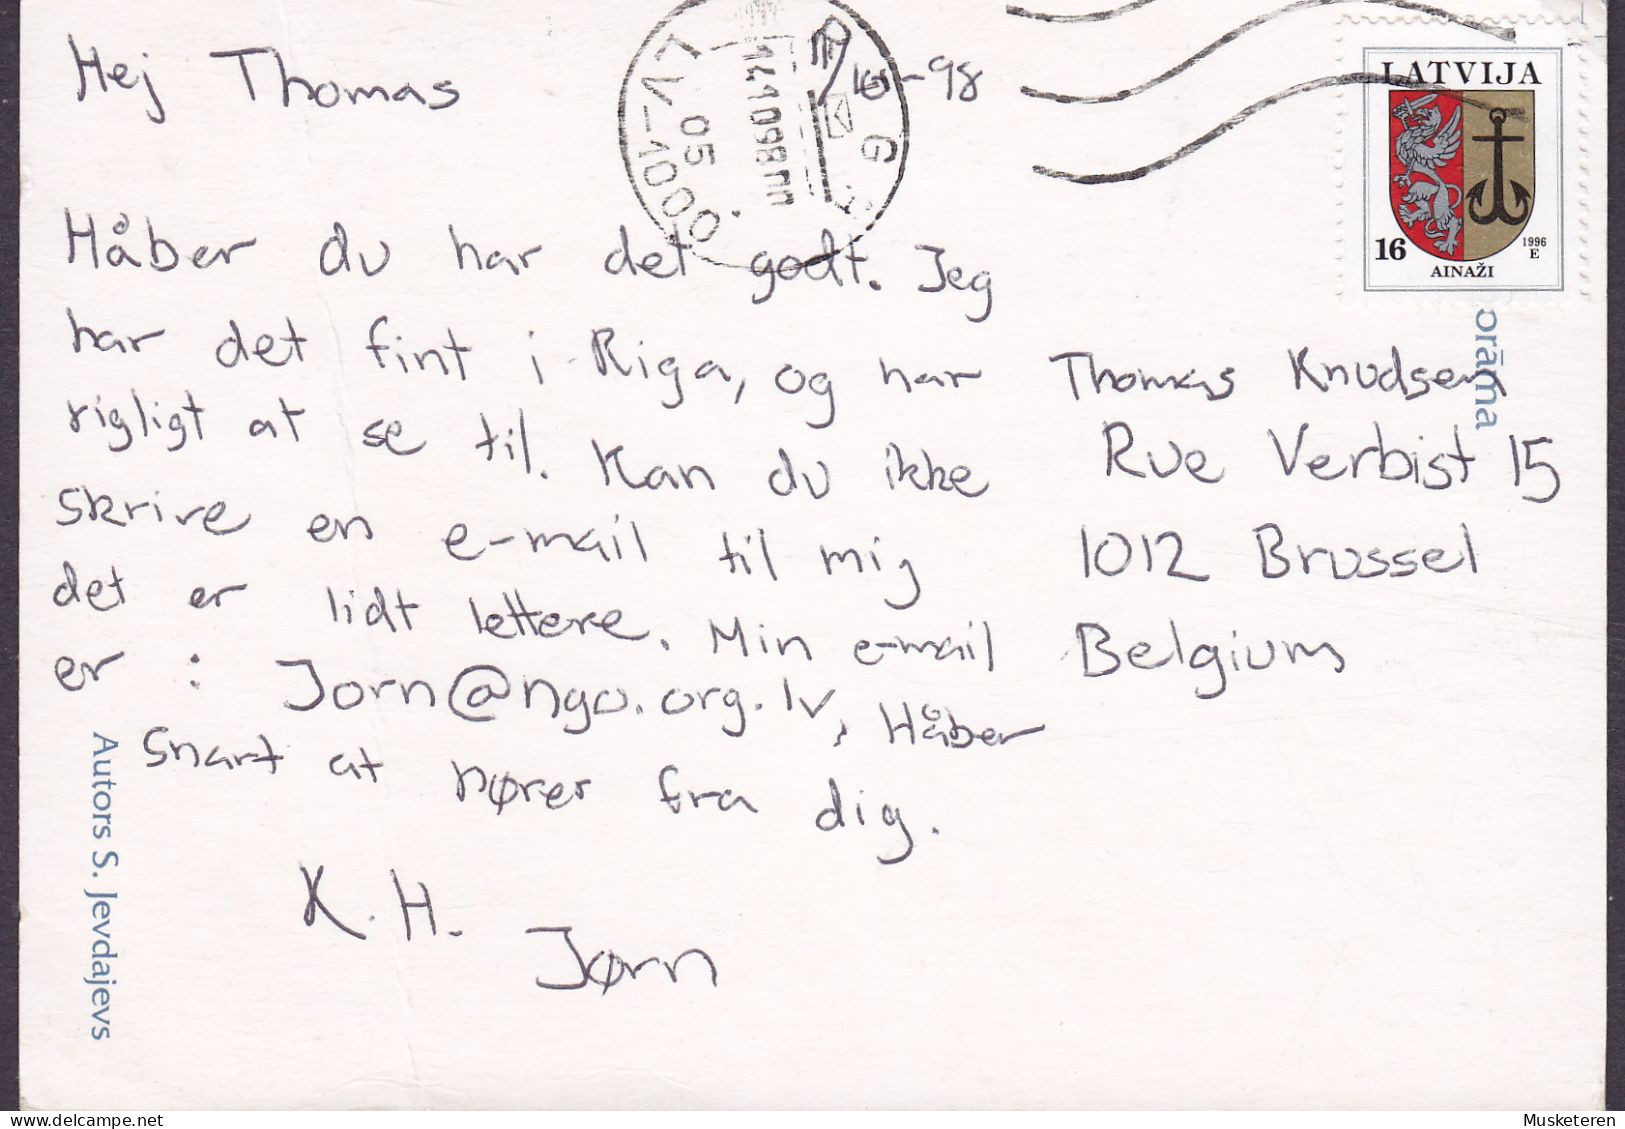 Hej Thomas
/10-98
Håber du har det godt. Jeg
har det fint i Riga, og har
rigligt at se til. Kan du ikke
skrive en e-mail til mig
det er lidt lettere. Min e-mail
er : Jorn@ngo.org.lv, Håber
snart at hører fra dig.
K.H.
Jørn
LATVIJA
16
1996
E
AINAŽI
Thomas Knudsen
Rue Verbist 15
1012 Brussel
Belgium
LV-1000
05
14.10.98
orāma
Autors S. Jevdajevs
Musketeren